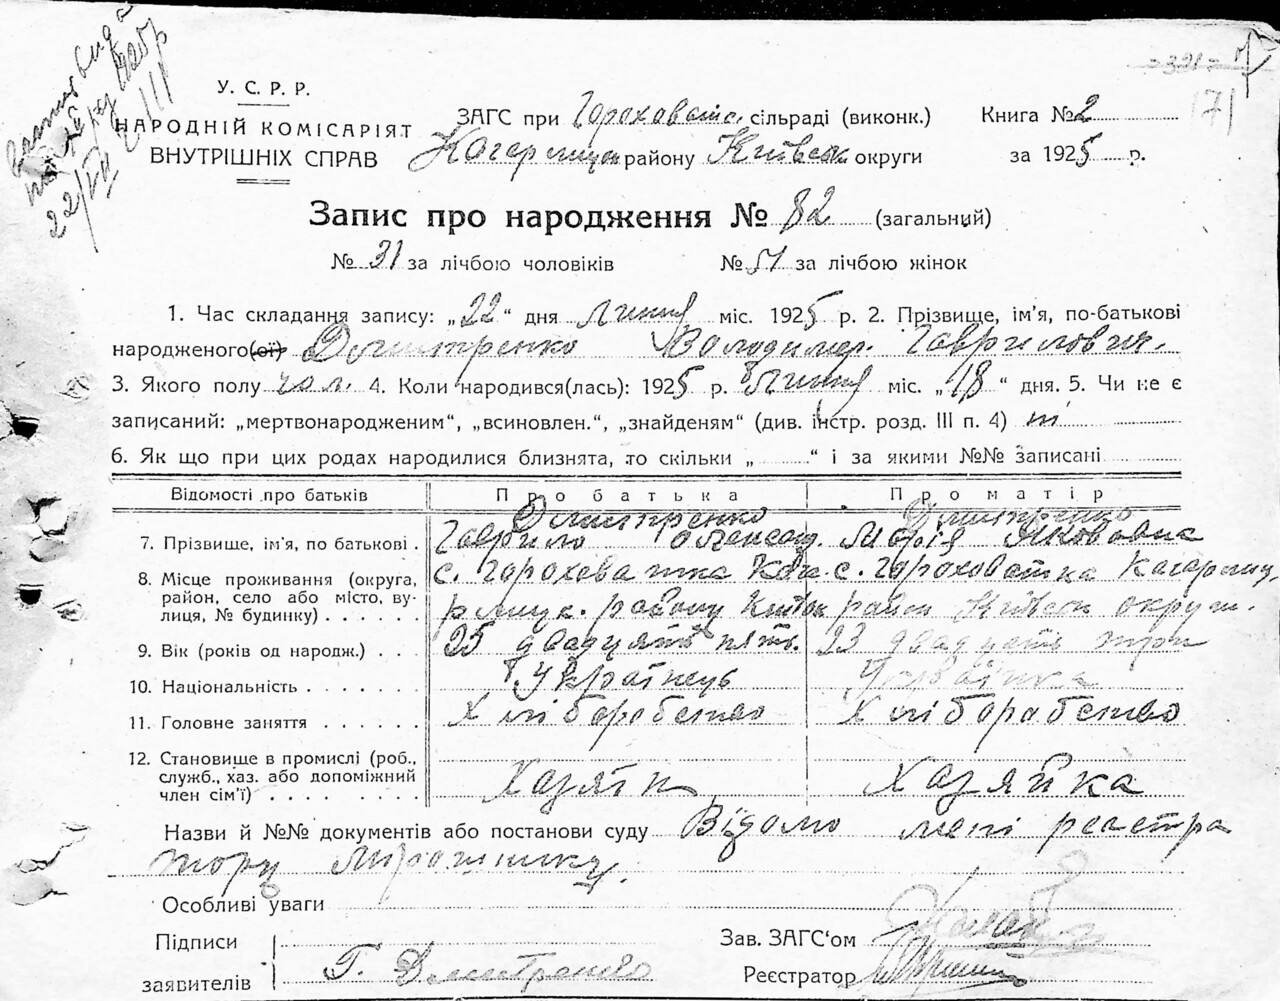 22/VII
321
171
У. С. Р. Р.
НАРОДНІЙ КОМІСАРІЯТ
ВНУТРІШНІХ СПРАВ
ЗАГС при Гороховатс. сільраді (виконк.) Книга № 2
Кагарлицьк району Київськ округи за 1925 р.
Запис про народження № 82 (загальний)
№ 31 за лічбою чоловіків № 51 за лічбою жінок
1. Час складання запису: „22“ дня липня міс. 1925 р. 2. Прізвище, ім’я, по-батькові
народженого(ої) Дмитренко Володимер Гаврилович.
3. Якого полу чол. 4. Коли народився(лась): 1925 р. липня міс. „18“ дня. 5. Чи не є
записаний: „мертвонародженим“, „всиновлен.“, „знайденям“ (див. інстр. розд. III п. 4) ні
6. Як що при цих родах народилися близнята, то скільки „ “ і за якими №№ записані
Відомості про батьків Про батька Про матір
Дмитренко Дмитренко
7. Прізвище, ім’я, по батькові . Гаврило Олексан. Марія Якововна
8. Місце проживання (округа, с. Гороховатка Кага- с. Гороховатка Кагарлиц
район, село або місто, ву-
лиця, № будинку) . . . . . . рлицк. району Київск район Київск округи.
9. Вік (років од народж.) . . 25 двадцять пять. 23 двадцать три
10. Національність . . . . . . . Українець Українка
11. Головне заняття . . . . . . Хліборобство Хліборобство
12. Становище в промислі (роб.,
служб., хаз. або допоміжний
член сім’ї) . . . . . . . . Хазяїн Хазяйка
Назви й №№ документів або постанови суду Відомо мені реєстра
тору Мірошнику.
Особливі уваги
Підписи
заявителів Г. Дмитренко
Зав. ЗАГС‘ом
Реєстратор